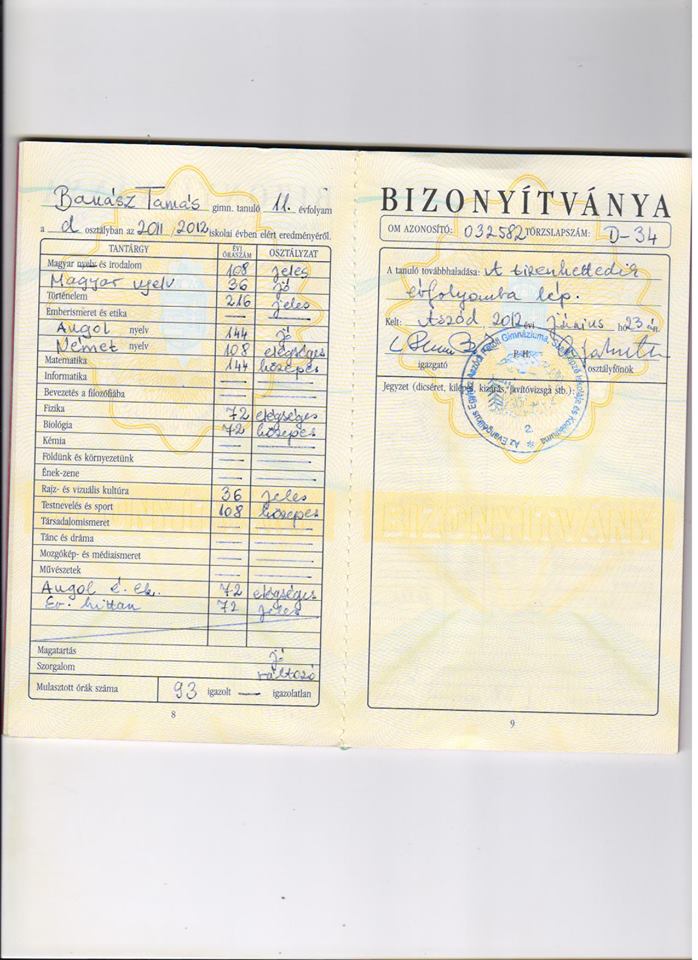 Banász Tamás gimn. tanuló 11. évfolyam
a d osztályban az 2011/2012 iskolai évben elért eredményéről.
TANTÁRGY ÉVI ÓRASZÁM OSZTÁLYZAT
Magyar nyelv és irodalom 108 jeles
Magyar nyelv 36 jó
Történelem 216 jeles
Emberismeret és etika — —
Angol nyelv 144 jó
Német nyelv 108 elégséges
Matematika 144 közepes
Informatika — —
Bevezetés a filozófiába — —
Fizika 72 elégséges
Biológia 72 közepes
Kémia — —
Földünk és környezetünk — —
Ének-zene — —
Rajz- és vizuális kultúra 36 jeles
Testnevelés és sport 108 közepes
Társadalomismeret — —
Tánc és dráma — —
Mozgókép- és médiaismeret — —
Művészetek — —
Angol é. ek. 72 elégséges
Ev. hittan 72 jeles
Magatartás jó
Szorgalom változó
Mulasztott órák száma 93 igazolt — igazolatlan
8
BIZONYÍTVÁNYA
OM AZONOSÍTÓ: 032582 TÖRZSLAPSZÁM: D-34
A tanuló továbbhaladása: A tizenkettedik
évfolyamba lép.
Kelt: Aszód 2012 évi június hó 23 án.
P. H.
igazgató osztályfőnök
Jegyzet (dicséret, kilépés, kizárás, javítóvizsga stb.):
Az Evangélikus Egyház Aszódi Petőfi Gimnáziuma, Szakképző Iskolája és Kollégiuma
2.
9